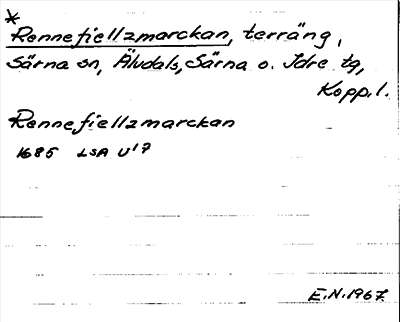 *
Rennefiellzmarckan, terräng,
Särna sn, Älvdals, Särna o. Idre tg,
Kopp.l.
Rennefiellzmarckan
1685 LSA U17
E.N. 1967.